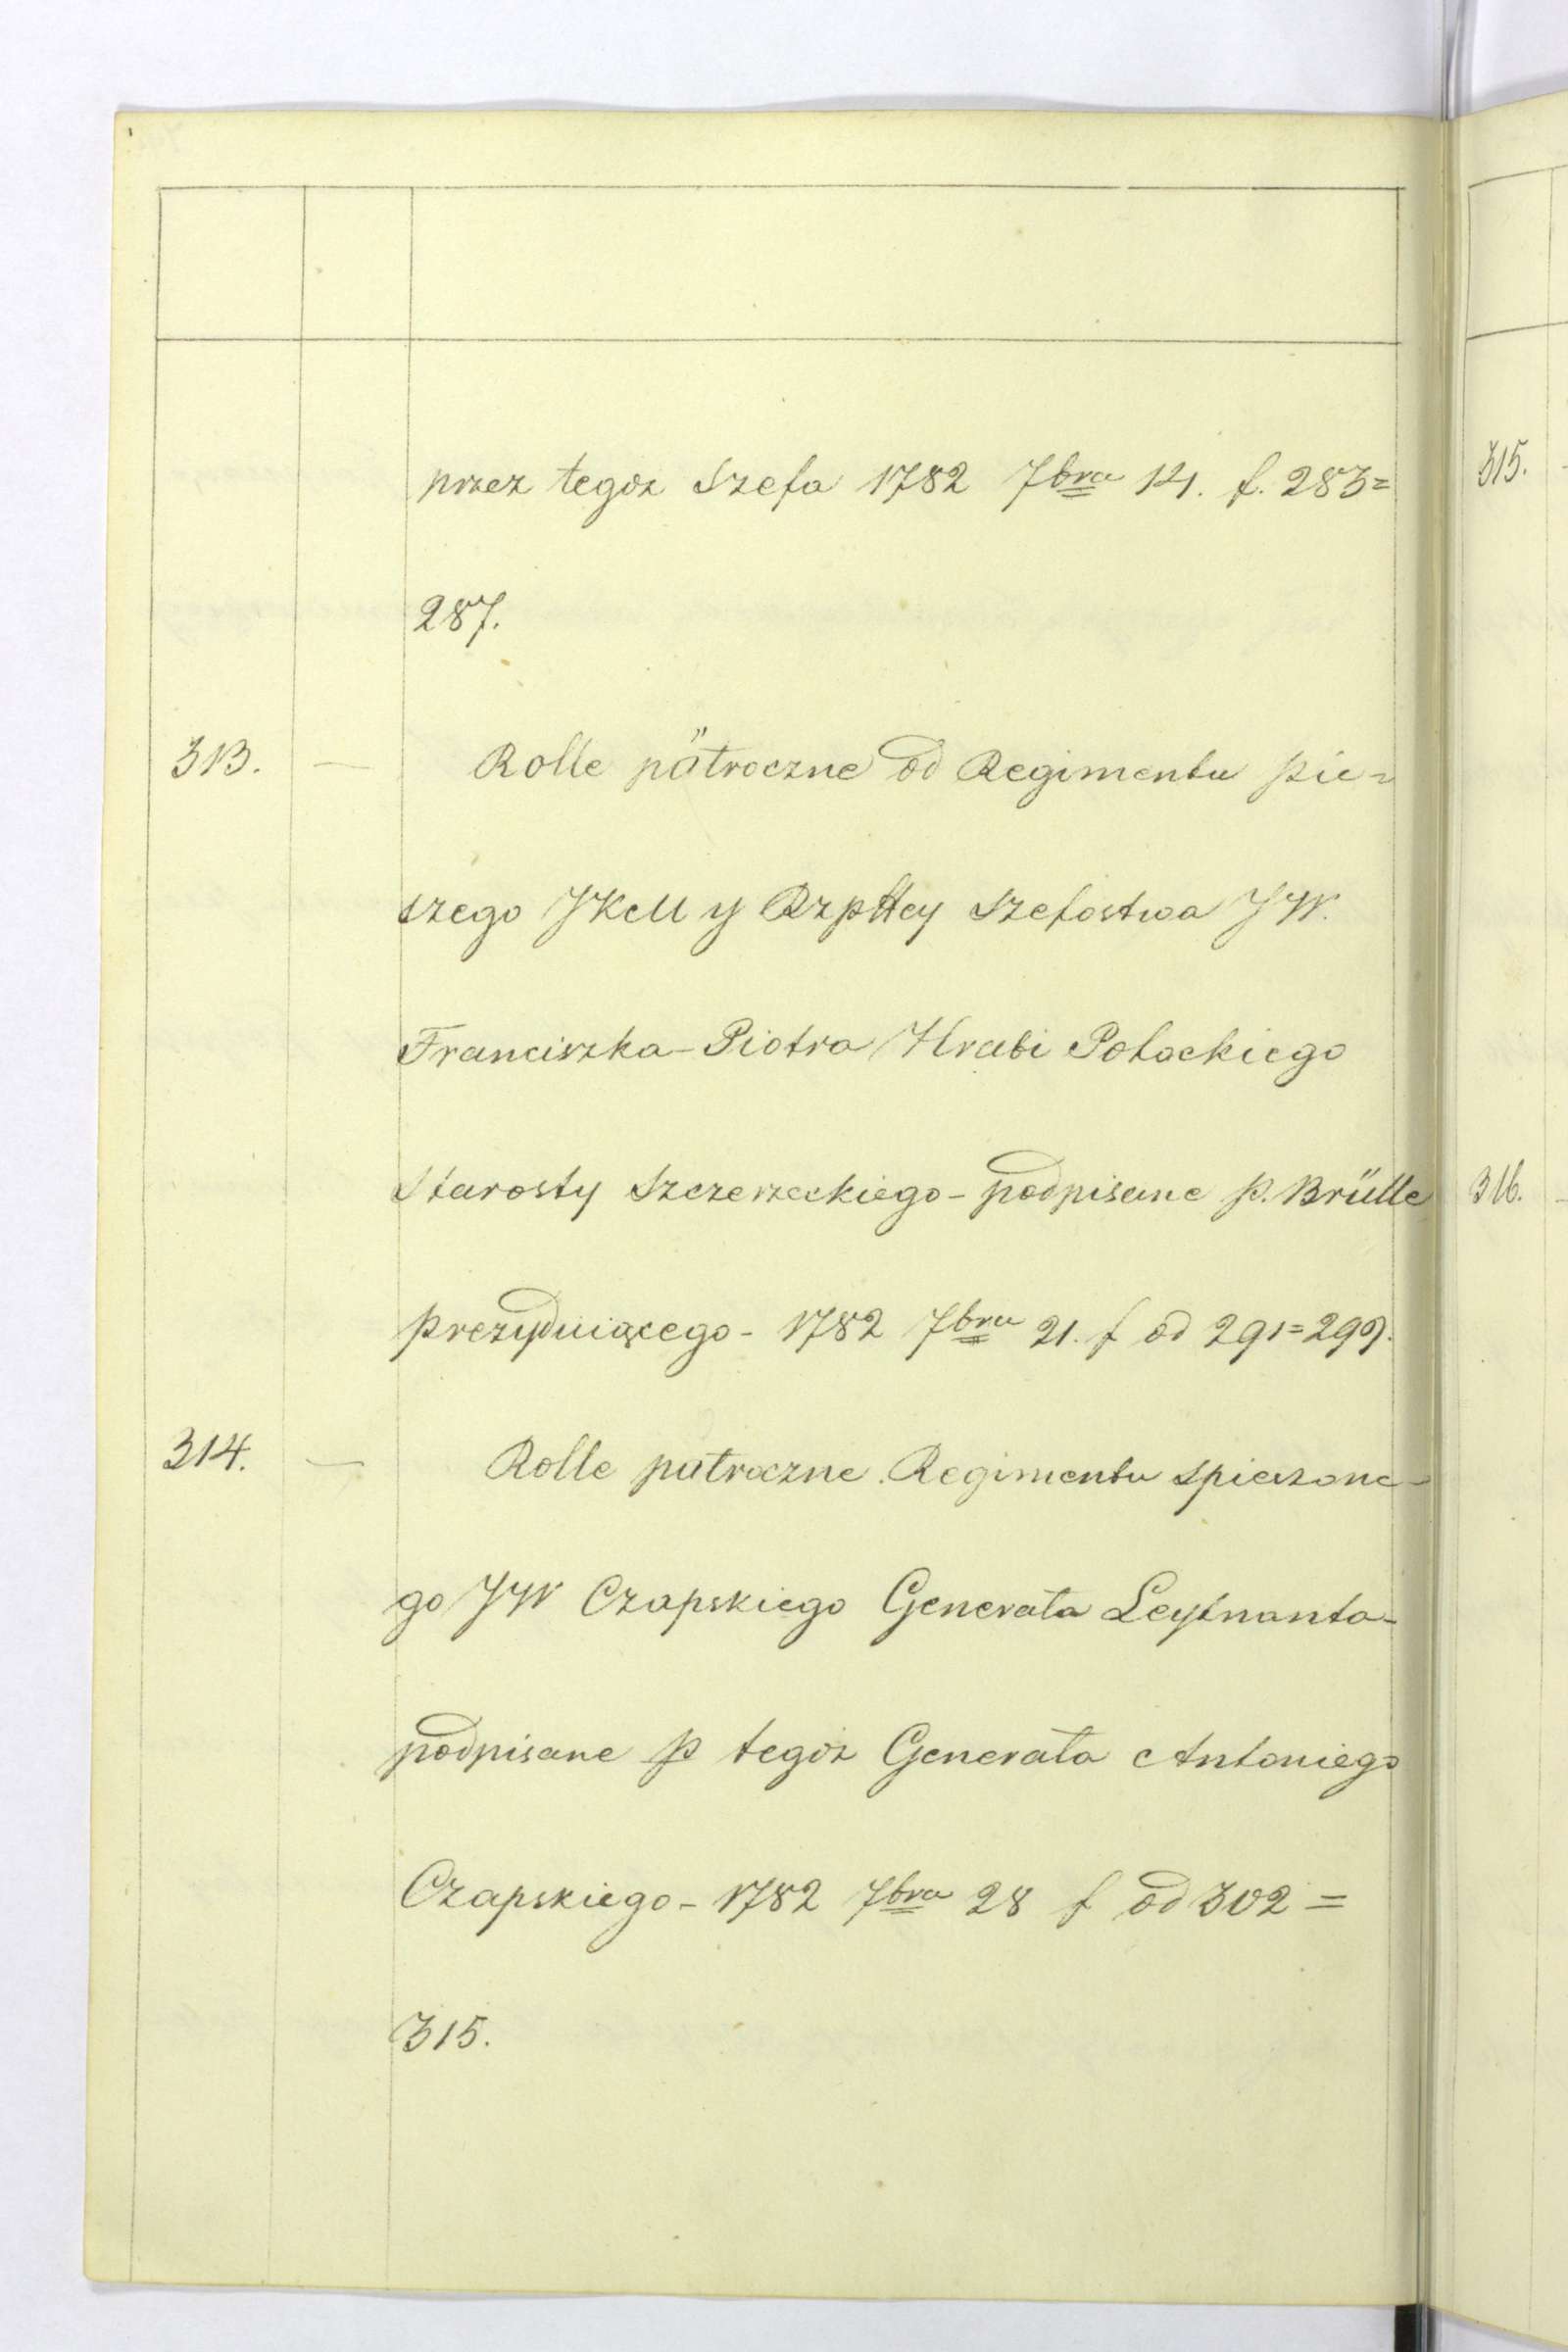 przez tegoz Szefa 1782 7bra 14. f. 283=
287.
313. — Rolle pätroczne od Regimentu pie=
szego JKcM y Rzplttey Szefostwa JW.
Franciszka-Piotra Hrabi Potockiego
Starosty Szczerzeckiego - podpisane p. Brülle
prezyduiącego - 1782 7bra 21. f od 291=299.
314. — Rolle patroczne Regimentu Spieszone-
go JW Czapskiego Generała Leytnanta-
podpisane p tegóz Generała Antoniego
Czapskiego - 1782 7bra 28 f od 302=
315.
315.
316.